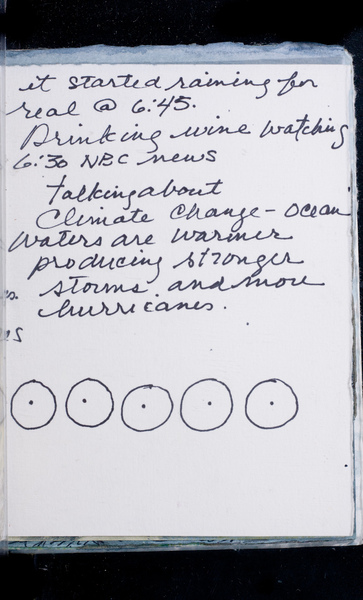 it started raining for
real @ 6:45.
Drinking wine watching
6:30 NBC news
talking about
Climate change - ocean
waters are warmer
producing stronger
storms and more
hurricanes.